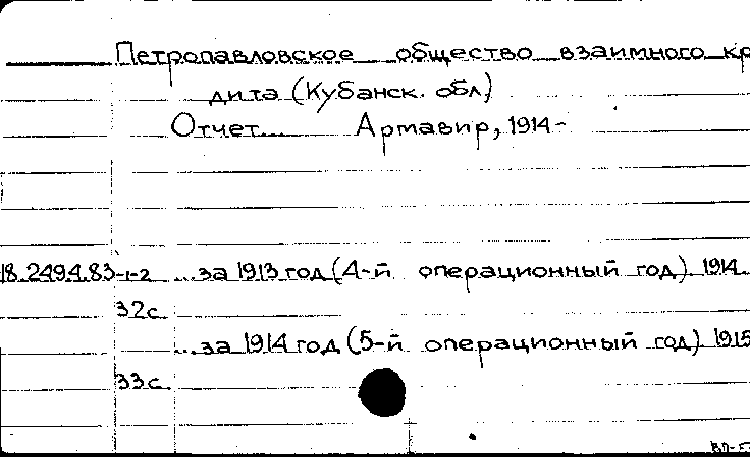 Петропавловское общество взаимного кр
дита (Кубанск. обл)
Отчет... Армавир, 1914-
18.249.4.83-1-2 ...за 1913 год (4-й операционный год). 1914.
32с.
...за 1914 год (5-й операционный год). 1915
33с.